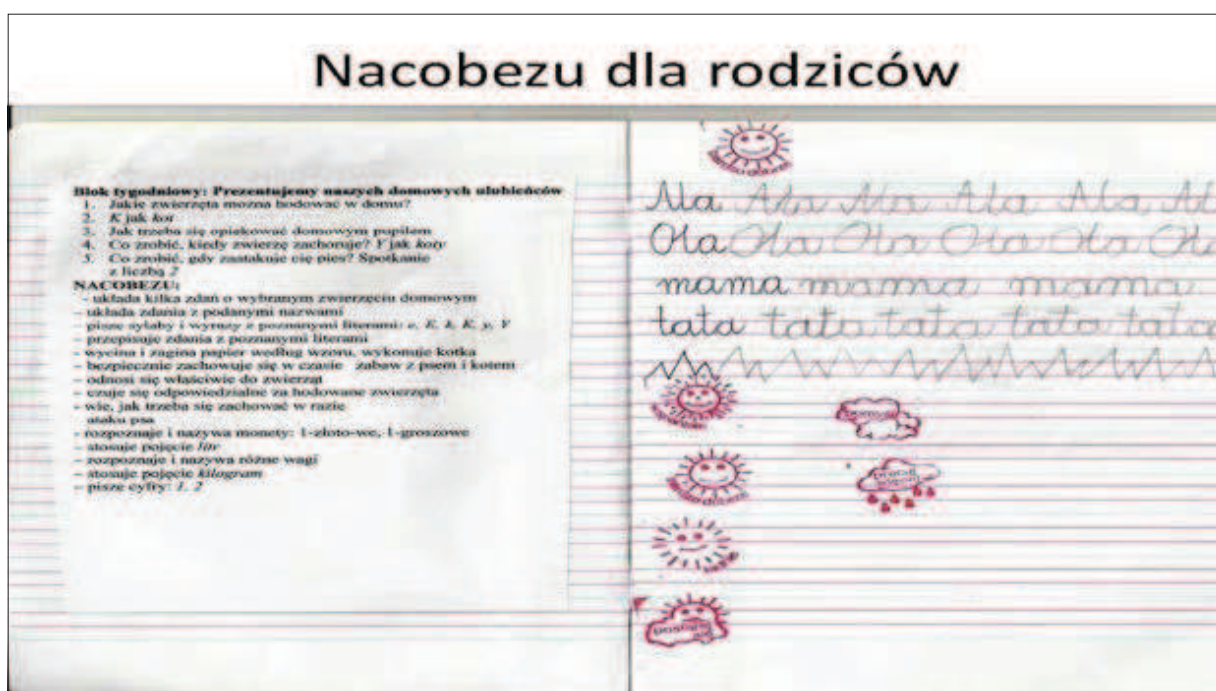 Nacobezu dla rodziców
Blok tygodniowy: Prezentujemy naszych domowych ulubieńców
1. Jakie zwierzęta można hodować w domu?
2. K jak kot
3. Jak trzeba się opiekować domowym pupilem
4. Co zrobić, kiedy zwierzę zachoruje? Y jak koty
5. Co zrobić, gdy zaatakuje cię pies? Spotkanie
z liczbą 2
NACOBEZU:
– układa kilka zdań o wybranym zwierzęciu domowym
– układa zdania z podanymi nazwami
– pisze sylaby i wyrazy z poznanymi literami: e, E, k, K, y, Y
– przepisuje zdania z poznanymi literami
– wycina i zagina papier według wzoru, wykonuje kotka
– bezpiecznie zachowuje się w czasie zabaw z psem i kotem
– odnosi się właściwie do zwierząt
– czuje się odpowiedzialne za hodowane zwierzęta
- wie, jak trzeba się zachować w razie
ataku psa
- rozpoznaje i nazywa monety: 1-złoto-we, 1-groszowe
– stosuje pojęcie litr
– rozpoznaje i nazywa różne wagi
– stosuje pojęcie kilogram
– pisze cyfry: 1, 2
Ala Ala Ala Ala Ala Al
Ola Ola Ola Ola Ola Ola
mama mama mama
tata tata tata tata tata